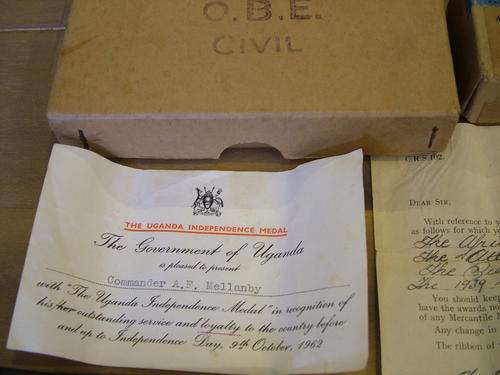 O.B.E.
CIVIL
THE UGANDA INDEPENDENCE MEDAL
The Government of Uganda
is pleased to present
Commander A.F. Mellanby
with "The Uganda Independence Medal" in recognition of
his/her outstanding service and loyalty to the country before
and up to Independence Day, 9th October, 1962
C.R.S 102.
DEAR SIR,
With reference to
as follows for which yo
The
The
The
The 1939-
You should kee
have the awards no
of any Mercantile
Any change in
The ribbon of